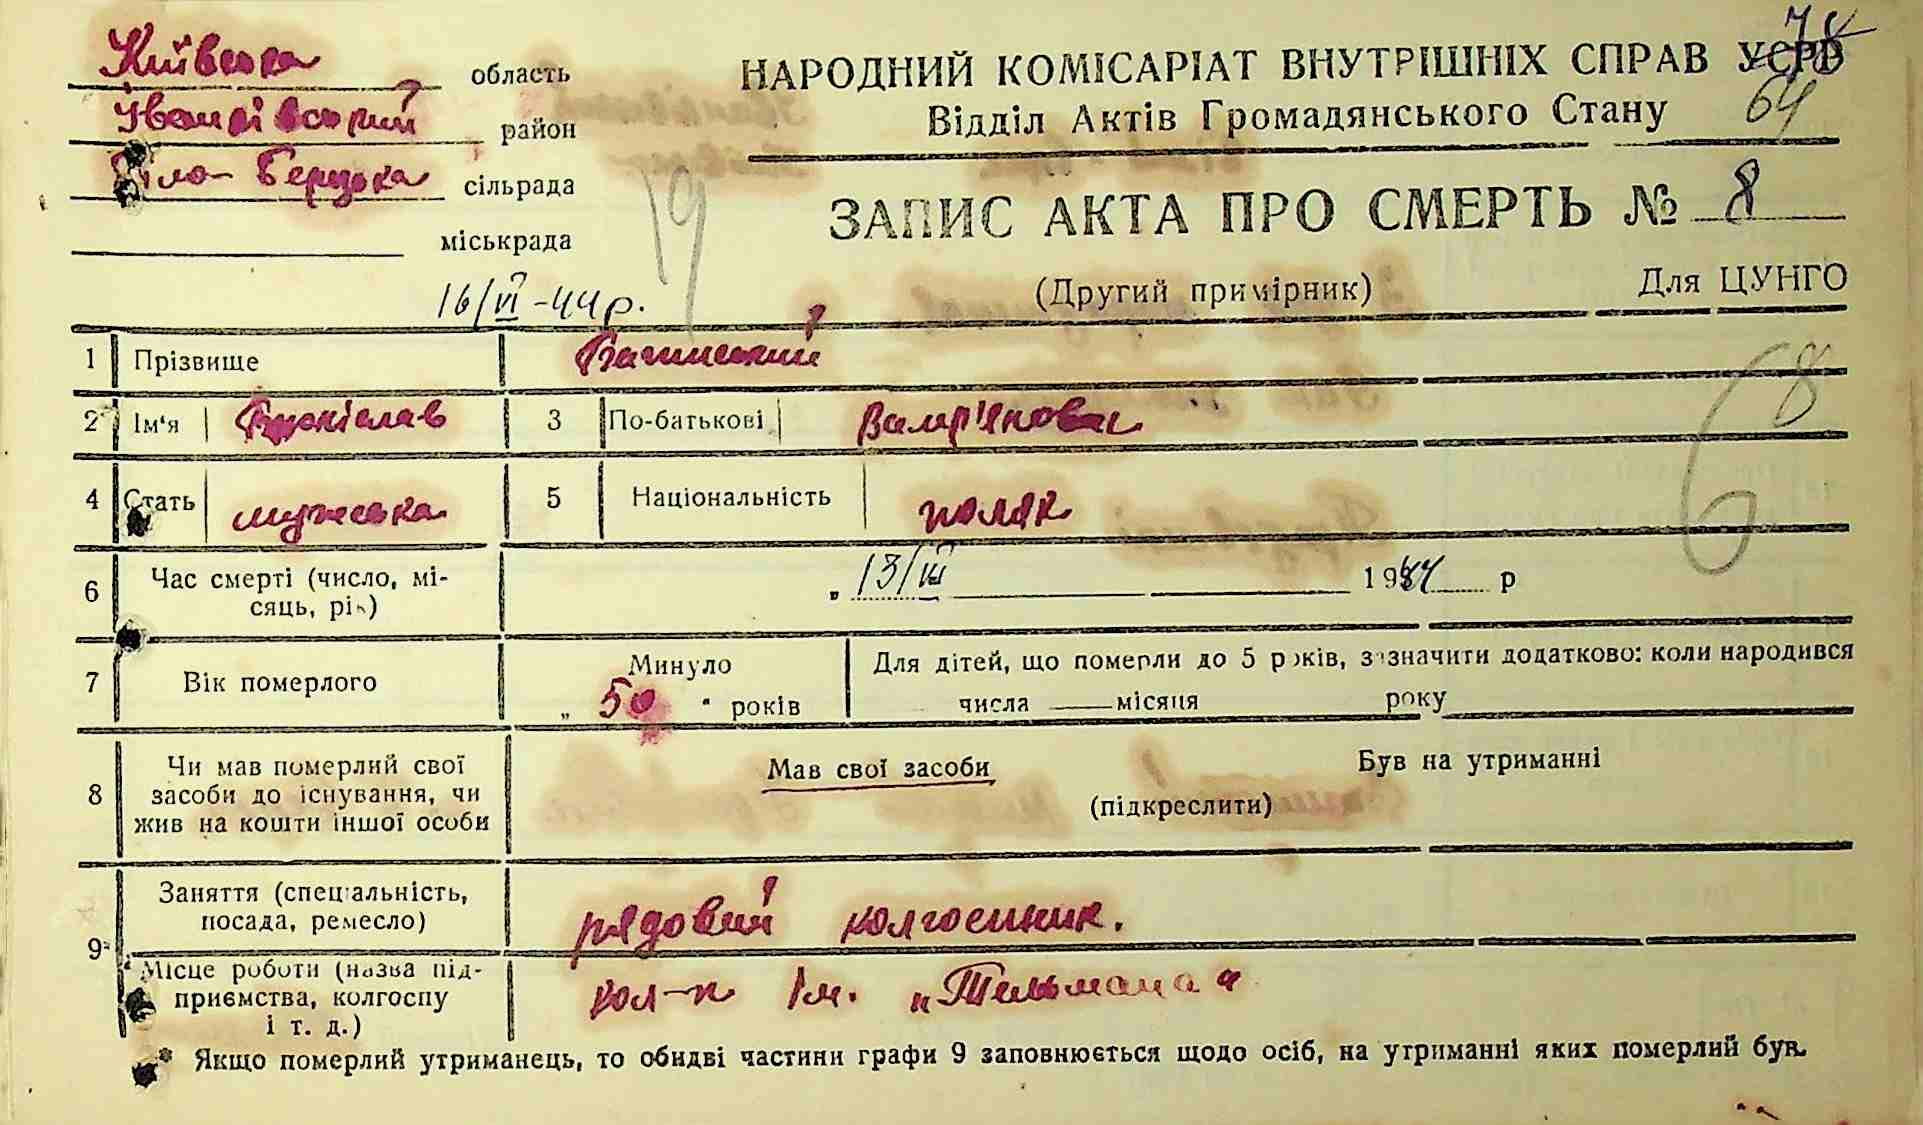 Київська область
Іванківский район
Біло-Берізька сільрада
міськрада
НАРОДНИЙ КОМІСАРІАТ ВНУТРІШНІХ СПРАВ УСРР
Відділ Актів Громадянського Стану
64
ЗАПИС АКТА ПРО СМЕРТЬ № 8
19
16/VI-44 р.
(Другий примірник) Для ЦУНГО
68
1 Прізвище
2 Ім'я Броніслав 3 По-батькові Валер'янович
4 Стать мужська 5 Національність поляк
6 Час смерті (число, мі-
сяць, рік) „ 13/III 1944 р
7 Вік померлого Минуло
„ 50 " років
Для дітей, що померли до 5 років, зазначити додатково: коли народився
числа місяця року
8 Чи мав померлий свої
засоби до існування, чи
жив на кошти іншої особи
Мав свої засоби Був на утриманні
(підкреслити)
9* Заняття (спеціальність,
посада, ремесло) рядовий колгоспник.
Місце роботи (назва під-
приємства, колгоспу
і т. д.) кол-п Ім. „Тельмана"
* Якщо померлий утриманець, то обидві частини графи 9 заповнюється щодо осіб, на утриманні яких померлий був.